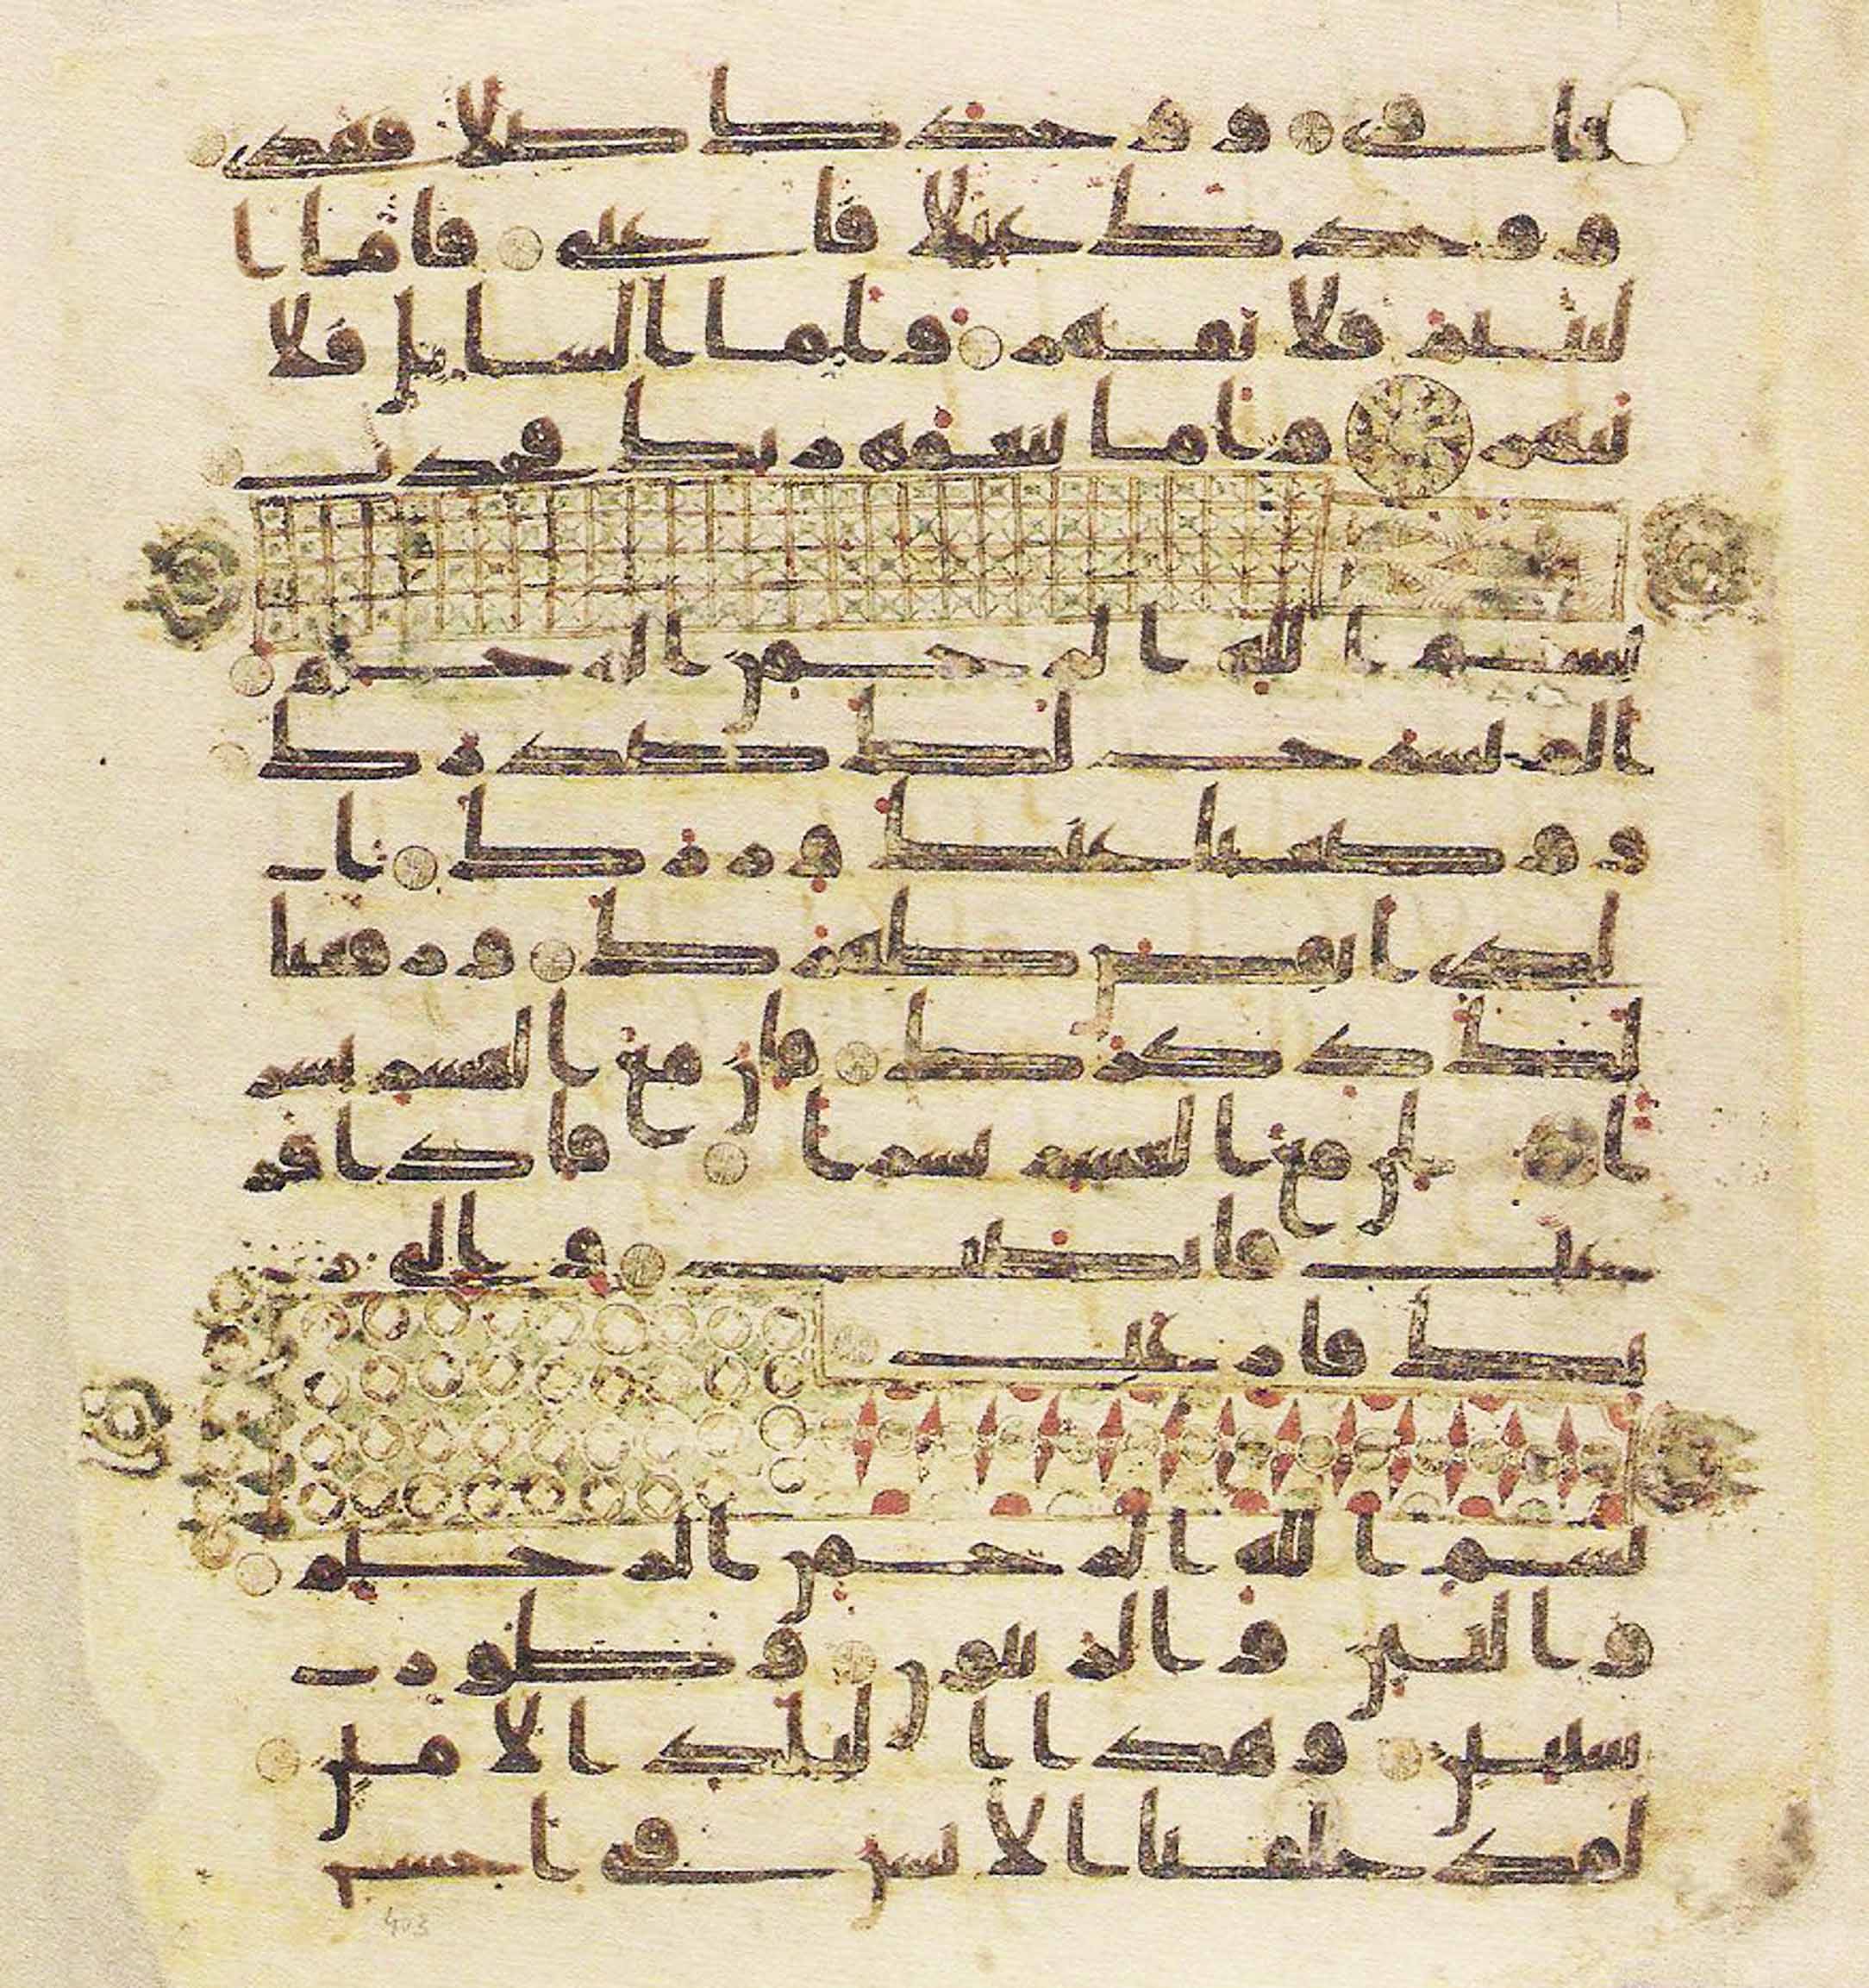 فاوى ووجدك ضالا فهدى
ووجدك عيلا فاغنى فاما ا
ليتيم فلا تقهر واما السايل فلا
تنهر واما بنعمه ربك فحدث
بسم الله الرحمن الرحيم
الم نشرح لك صدرك
ووضعنا عنك وزرك ا
لذى انقض ظهرك ورفعنا
لك ذكرك فان مع العسر يسر
ا ان مع العسر يسرا فاذا فر
غت فانصب والى ر
بك فارغب
بسم الله الرحمن الرحيم
والتين والزيتون وطور
سينين وهذا البلد الامين
لقد خلقنا الانسن فى احسن
403